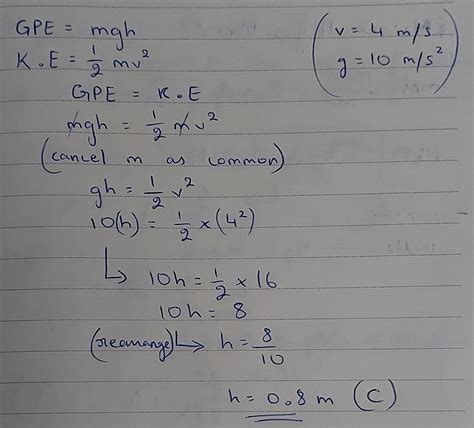 GPE = mgh
K.E = 1/2 mv²
(v = 4 m/s
g = 10 m/s²)
GPE = K.E
mgh = 1/2 mv²
(cancel m as common)
gh = 1/2 v²
10(h) = 1/2 × (4²)
↳ 10h = 1/2 × 16
10h = 8
(rearrange) ↳ h = 8/10
h = 0.8 m (C)